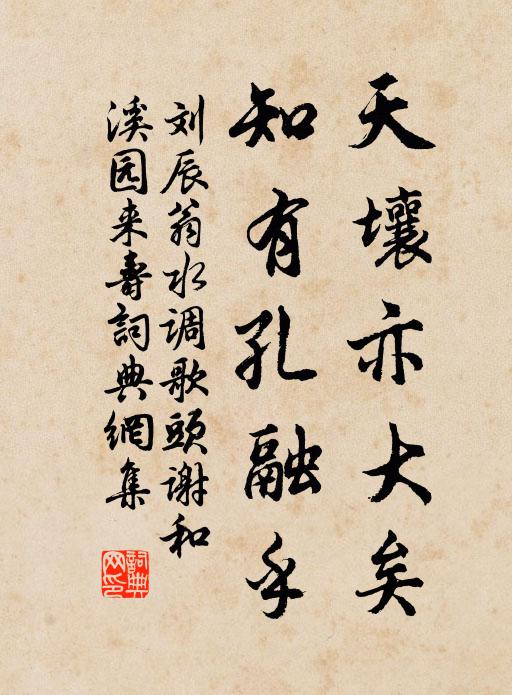 天壤亦大矣
知有孔融乎
刘辰翁水调歌頭谢和
溪园来壽詞典網集
詞典网印